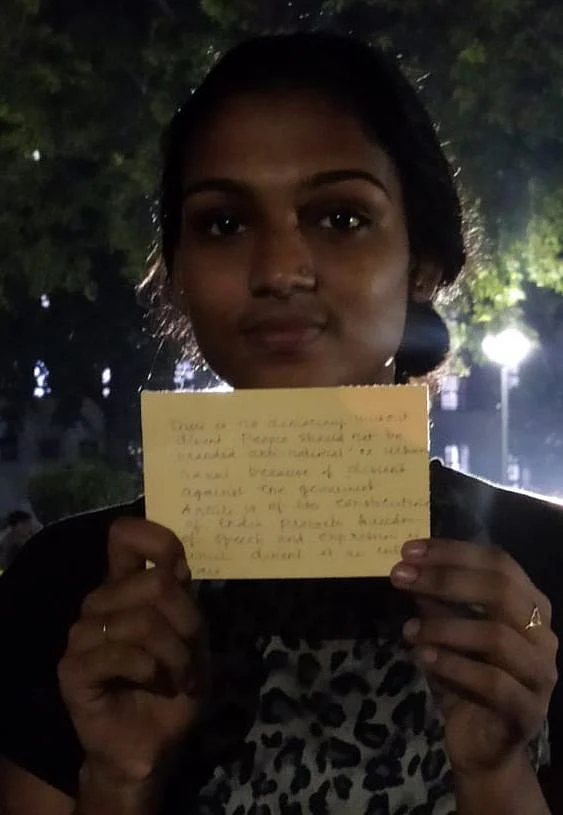 There is no democracy without
dissent. People should not be
branded anti-national or urban
naxal because of dissent
against the government.
Article 19 of the constitution
of India provide freedom
of speech and expression
which dissent is an